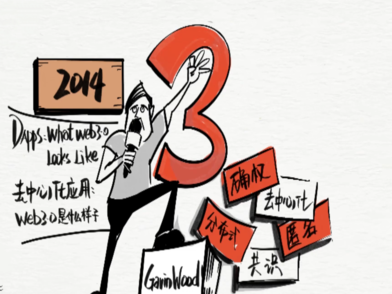 2014
3
Dapps:What web3.0
Looks Like
去中心化应用:
Web3.0是什么样子
确权
去中心化
分布式
匿名
共识
GavinWood